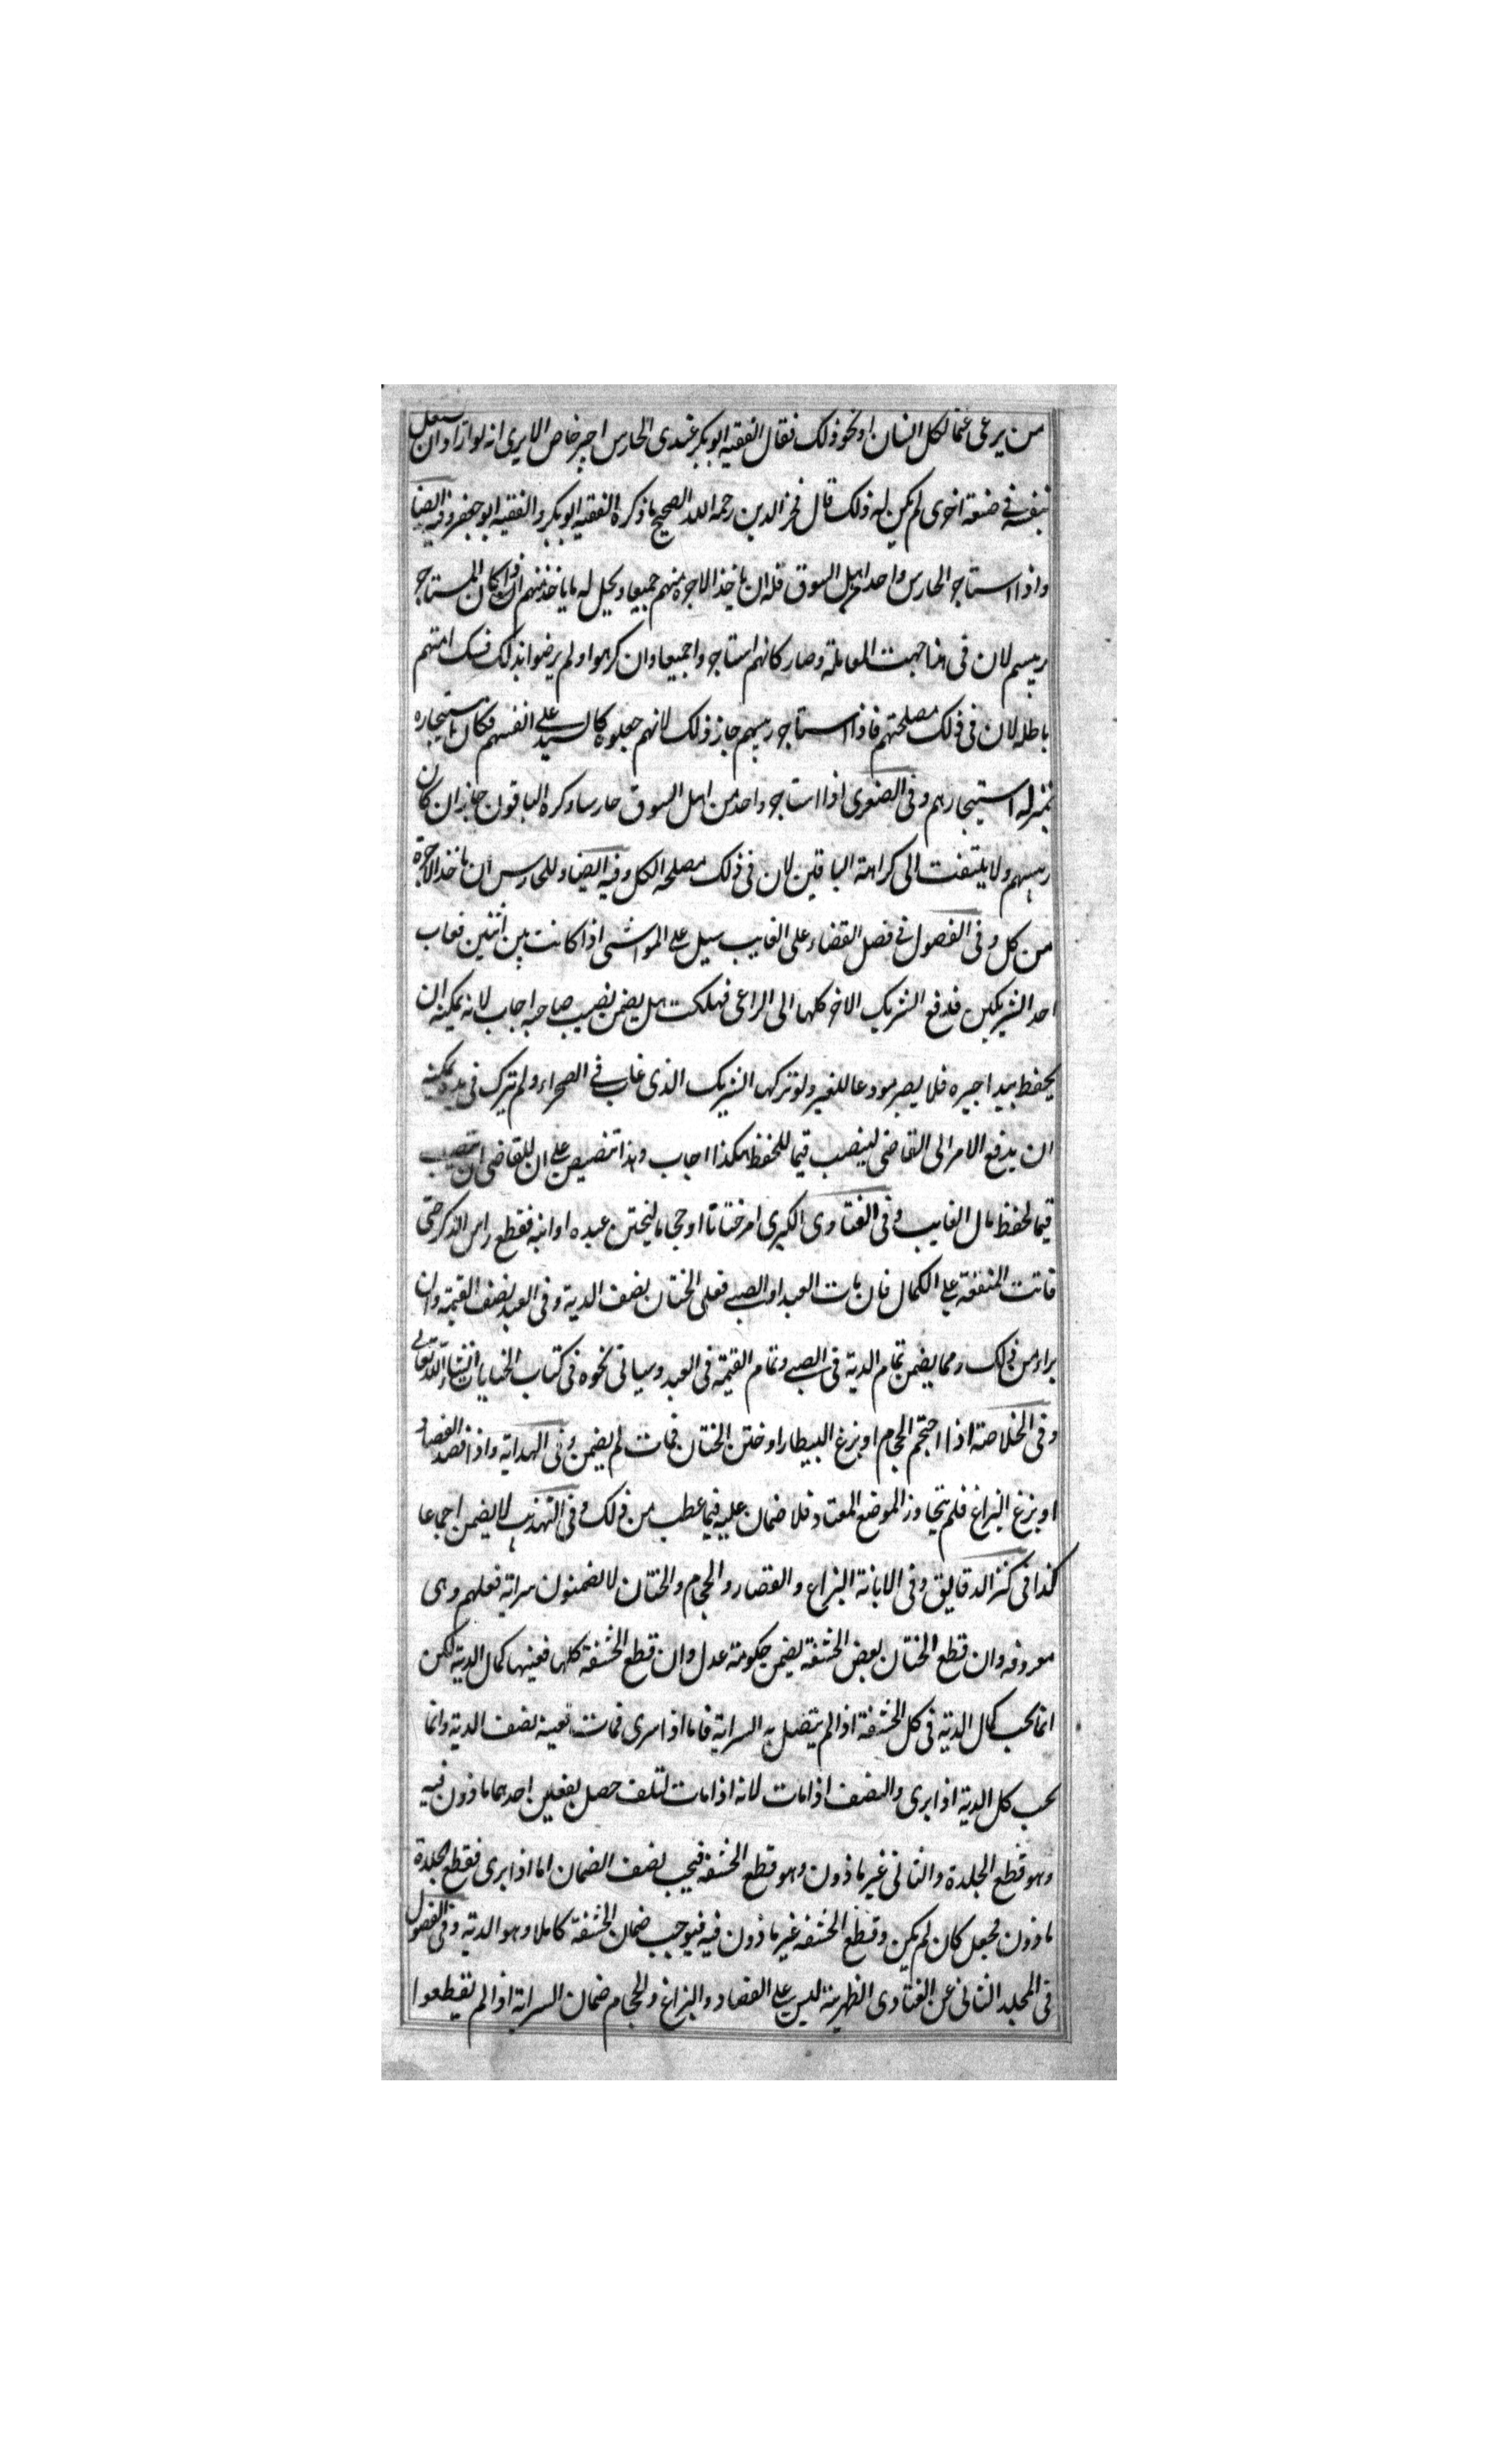 من يرعى غنما لكل انسان او نحو ذلك فقال الفقيه ابو بكر عندى الحارس اجير خاص الا يرى انه لو اراد ان يشغل
نفسه فى صنعة اخرى لم يكن له ذلك قال فخر الدين رحمه الله الصحيح ما ذكره الفقيه ابو بكر و الفقيه ابو جعفر وفيه ايضا
واذا استاجر الحارس واحد من اهل السوق فله ان ياخذ الاجرة منهم جميعا ويحل له ما ياخذ منهم ان كان المستاجر
رييسهم لان فى هذا جهت المعاملة وصار كانهم استاجروا جميعا وان كرهوا ولم يرضوا بذلك فكراهتهم
باطله لان فى ذلك مصلحتهم فاذا استاجر رييسهم جاز ذلك لانهم جعلوه كالسيد على انفسهم فكان استيجاره
بمنزله استيجارهم وفى الصغرى اذا استاجر واحد من اهل السوق حارسا وكره الباقون جاز ان كان
رييسهم ولا يلتفت الى كراهة الباقين لان فى ذلك مصلحه الكل وفيه ايضا وللحارس ان ياخذ الاجرة
من كل وفى الفصول فى فصل القضاء على الغايب سيل على المواشى اذا كانت بين اثنين فغاب
احد الشريكين فدفع الشريك الاخر كلها الى الراعى فهلكت هل يضمن نصيب صاحبه اجاب لا لانه يمكنه ان
يحفظ بيد اجيره فلا يصير مودعا للغير ولو تركها الشريك الذى غاب فى الصحراء ولم يترك فى يده يمكنه
ان يرفع الامر الى القاضى لينصب قيما للحفظ هكذا اجاب وهذا تنصيص على ان للقاضى ان ينصب
قيما لحفظ مال الغايب وفى الفتاوى الكبرى امر ختانا او حجاما ليختن عبده او ابنه فقطع راس الذكر حتى
فاتت المنفعة على الكمال فان مات العبد او الصبى فعلى الختان نصف الدية وفى العبد نصف القيمة وان
براء من ذلك ومما يضمن تمام الدية فى الصبى وتمام القيمة فى العبد وسياتى نحوه فى كتاب الجنايات انشاء الله تعالى
وفى الخلاصة اذا احتجم الحجام او بزغ البيطار او ختن الختان فمات لم يضمن وفى الهداية واذا فصد الفصاد
او بزغ البزاغ فلم يتجاوز الموضع المعتاد فلا ضمان عليه فيما عطب من ذلك وفى التهذيب لا يضمن اجماعا
كذا فى كنز الدقايق وفى الابانة البزاع و الفصار و الحجام و الختان لا يضمنون سراية فعلهم وهى
معروفه وان قطع الختان بعض الحشفة يضمن حكومة عدل وان قطع الحشفة كلها فعينها كمال الدية لكن
انما يجب كمال الدية فى كل الحشفة اذا لم يتصل به السراية فاما اذا سرى فمات فعينه نصف الدية وانما
يجب كل الدية اذا برى والنصف اذا مات لانه اذا مات لتلف حصل بفعلين احدهما ماذون فيه
وهو قطع الجلدة و الثانى غير ماذون وهو قطع الحشفه فيجب نصف الضمان اما اذا برى فقطع الجلدة
ماذون فجعل كان لم يكن وقطع الحشفه غير ماذون فيه فيوجب ضمان الحشفة كاملا وهو الدية وفى الفصول
فى المجلد الثانى عن الفتاوى الظهيرية ليس على الفصاد والبزاغ والحجام ضمان السراية اذا لم يقطعوا